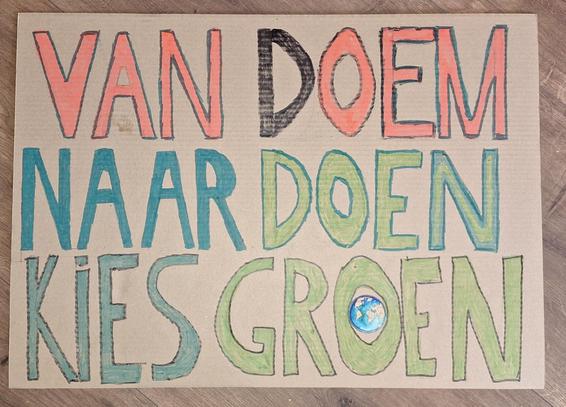 VAN DOEM
NAAR DOEN
KiES GROEN